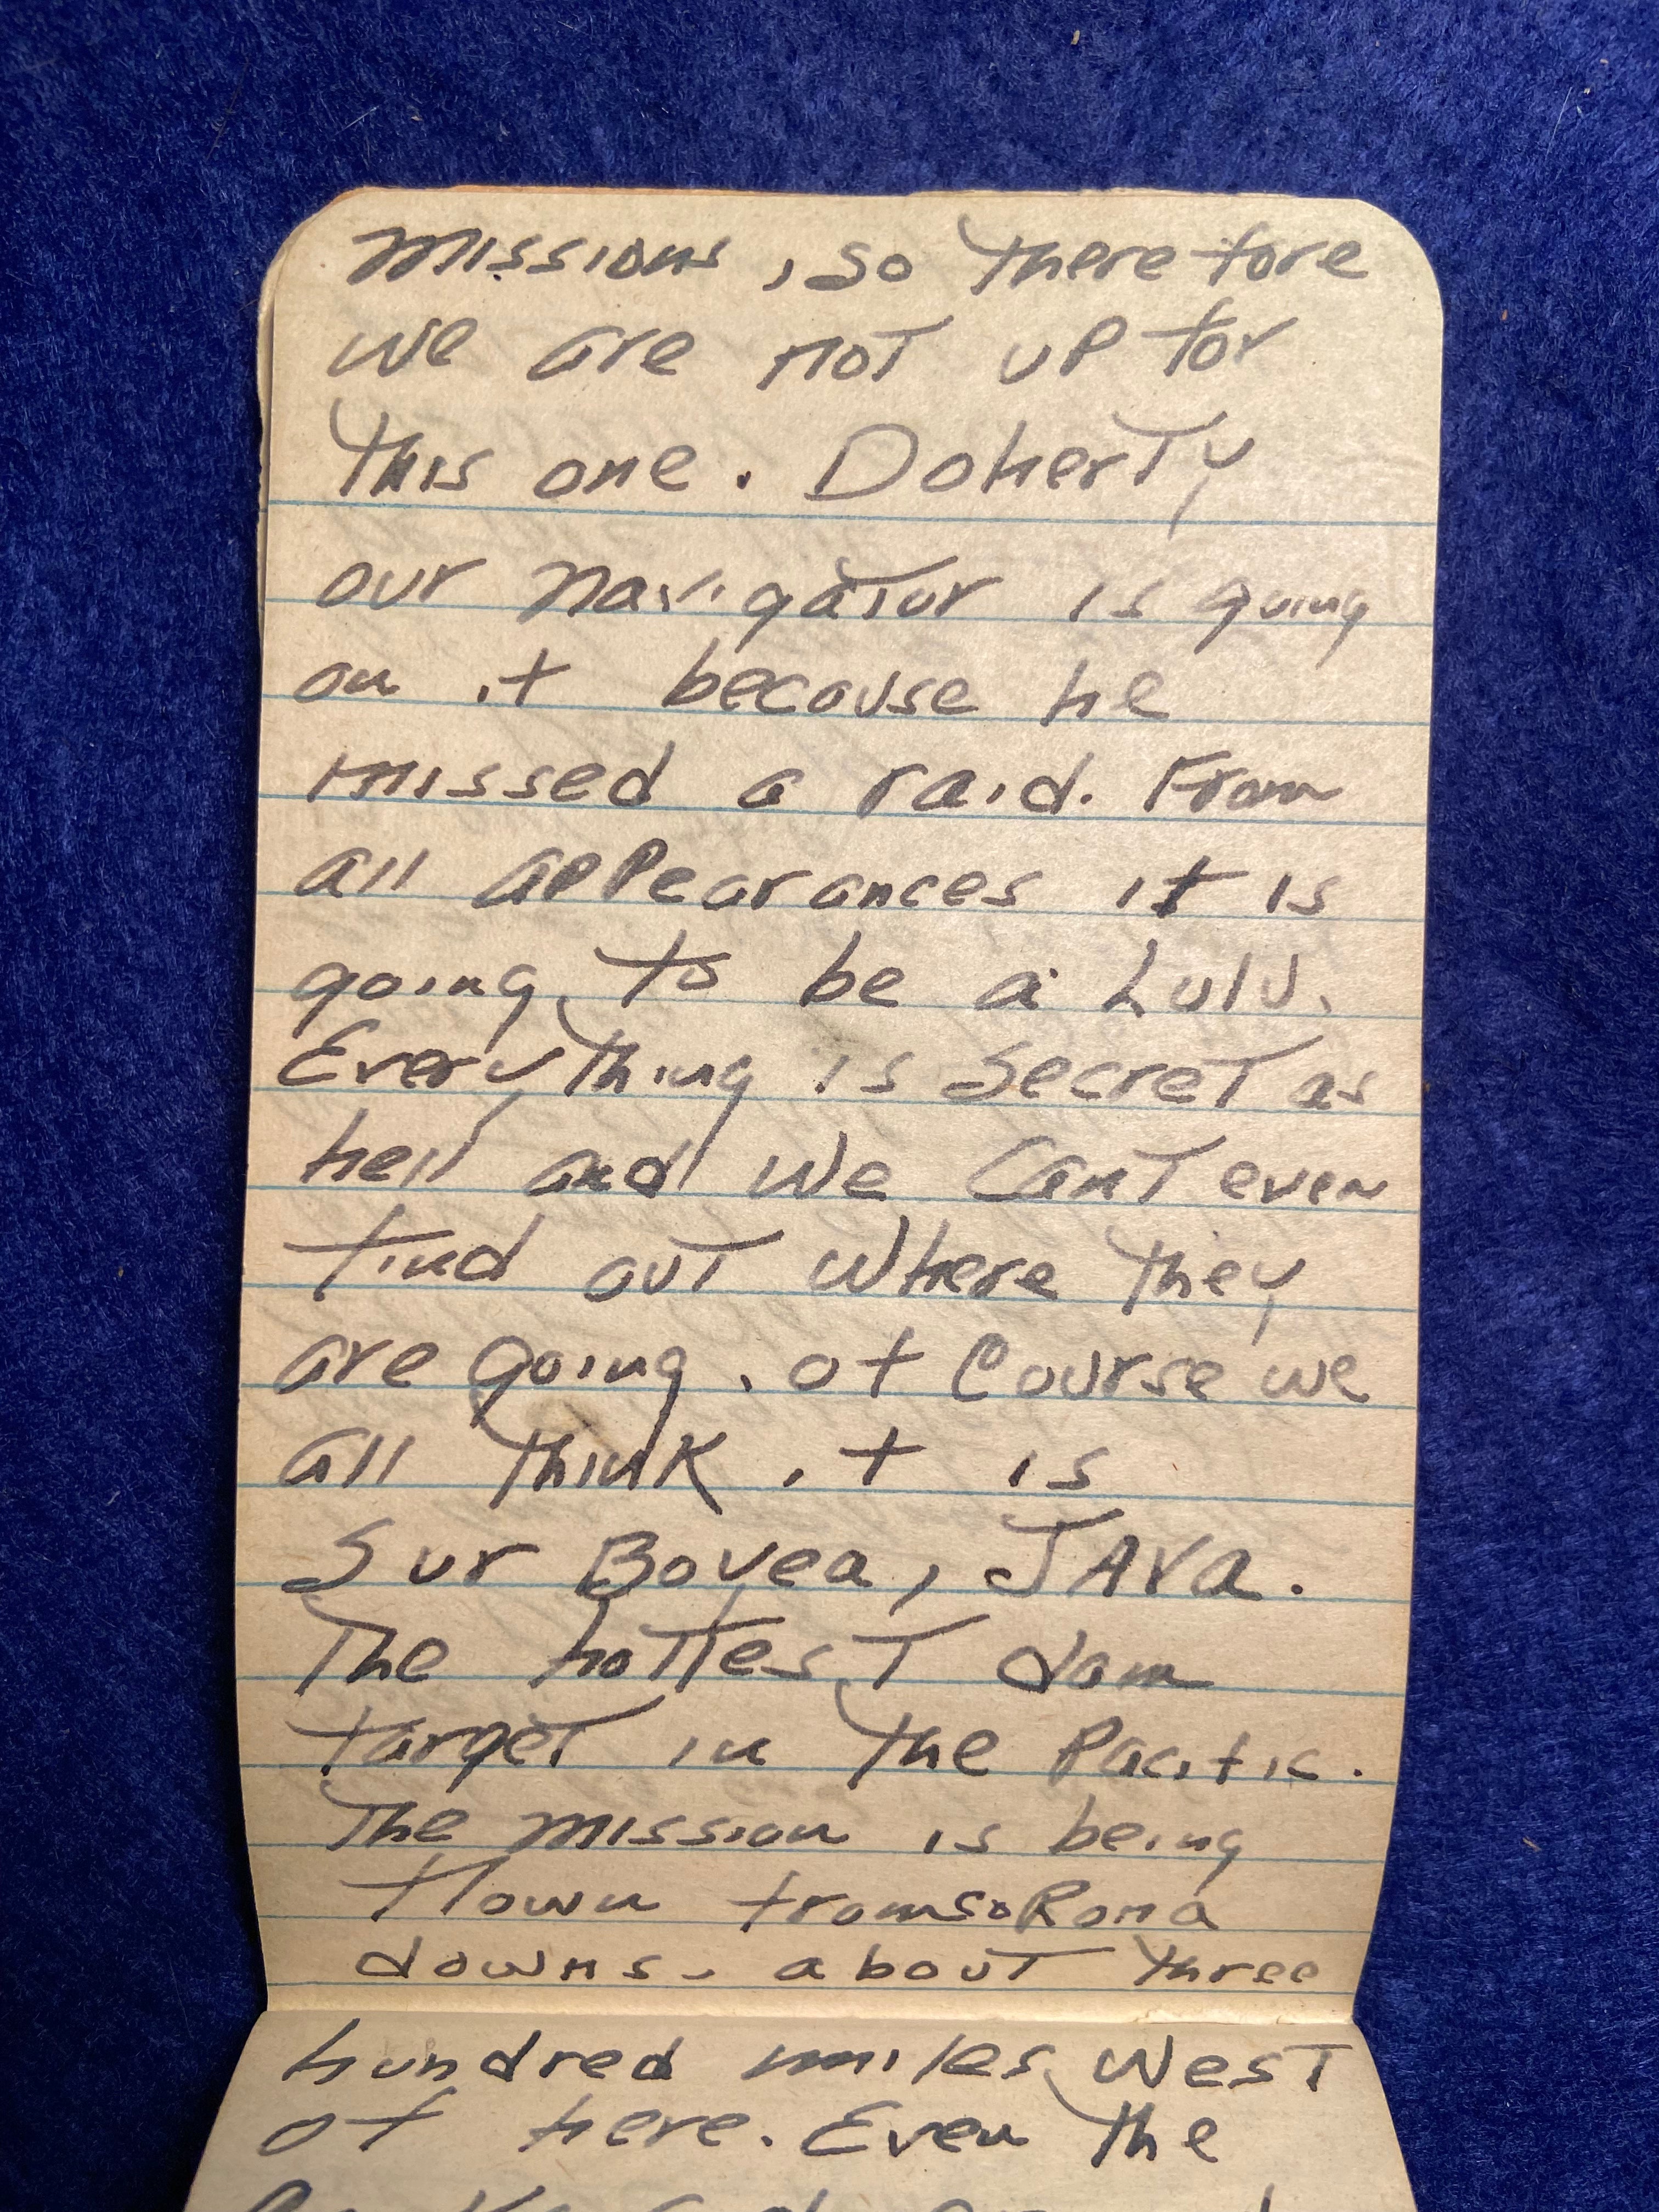 missions, so therefore
we are not up for
this one. Doherty
our navigator is going
on it because he
missed a raid. From
all appearances it is
going to be a Lulu.
Everything is secret as
hell and we Cant even
find out where they
are going. of Course we
all think it is
Sur Bovea, JAva.
The hottest dam
target in the Pacific.
The mission is being
flown from Rona
downs. about three
hundred miles West
of here. Even the